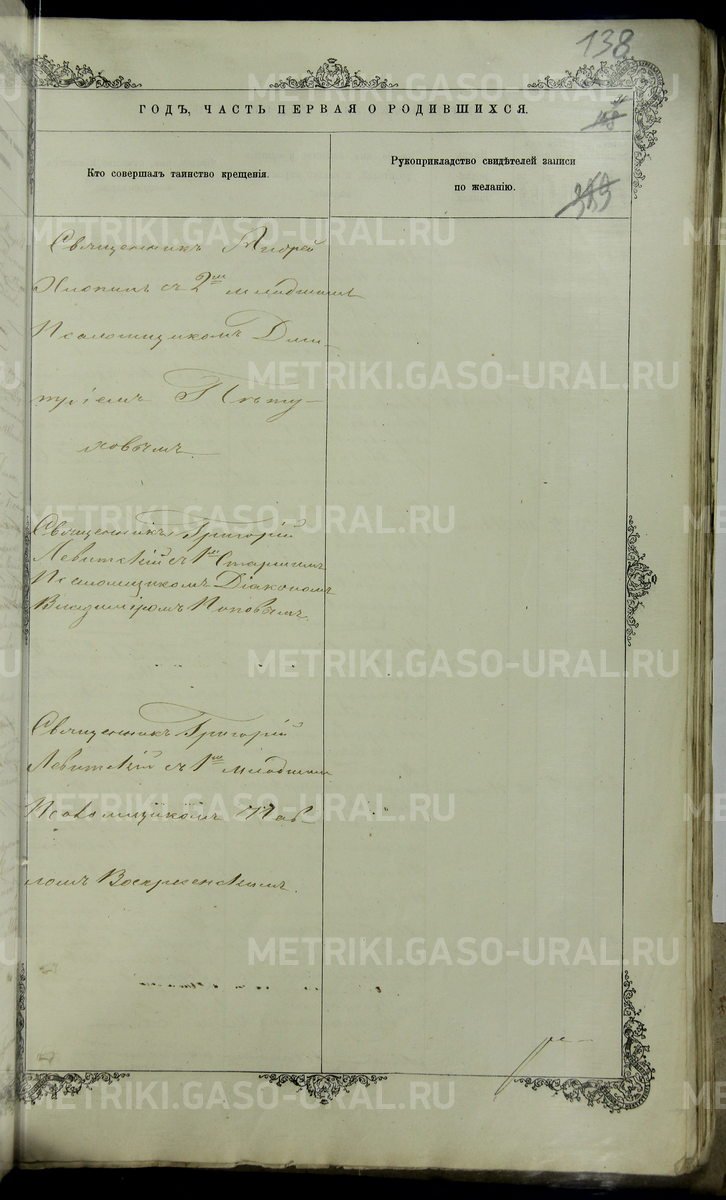 138
ГОДЪ, ЧАСТЬ ПЕРВАЯ О РОДИВШИХСЯ.
Кто совершалъ таинство крещенія.
Рукоприкладство свидѣтелей записи
по желанію.
Священникъ Андрей
Хлопинъ съ 2мъ младшимъ
Псаломщикомъ Дми-
тріемъ Пѣту-
ховымъ
Священникъ Григорій
Левитскій съ 1мъ Старшимъ
Псаломщикомъ Діакономъ
Владиміромъ Поповымъ
Священникъ Григорій
Левитскій съ 1мъ младшим
Псаломщикомъ Пав
ломъ Воскресенскимъ.
METRIKI.GASO-URAL.RU
METRIKI.GASO-URAL.RU
METRIKI.GASO-URAL.RU
METRIKI.GASO-URAL.RU
METRIKI.GASO-URAL.RU
METRIKI.GASO-URAL.RU
METRIKI.GASO-URAL.RU
METRIKI.GASO-URAL.RU